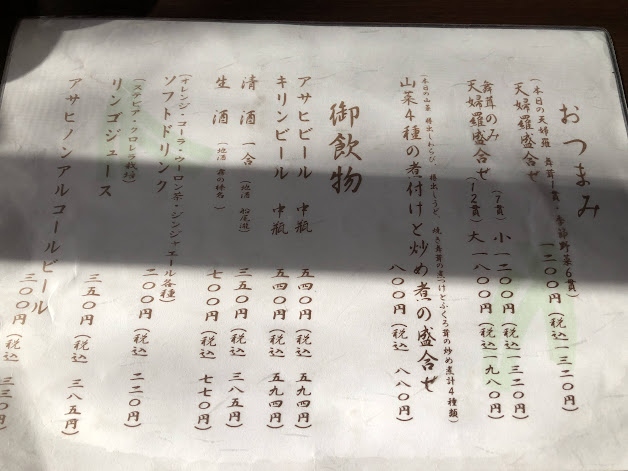 おつまみ
(本日の天婦羅 舞茸1貫・季節野菜6貫)
天婦羅盛合せ 一二〇〇円(税込 一三二〇円)
舞茸のみ (7貫) 小 一二〇〇円(税込 一三二〇円)
天婦羅盛合せ (12貫) 大 一八〇〇円(税込 一九八〇円)
山菜4種の煮付けと炒め煮の盛合せ 八〇〇円(税込 八八〇円)
御飲物
アサヒビール 中瓶 五四〇円(税込 五九四円)
キリンビール 中瓶 五四〇円(税込 五九四円)
清酒 一合(地酒 船尾瀧) 三五〇円(税込 三八五円)
生酒(地酒 七〇〇円(税込 七七〇円)
ソフトドリンク 二〇〇円(税込 二二〇円)
(オレンジ・コーラ・ウーロン茶・ジンジャエール各種)
リンゴジュース 三五〇円(税込 三八五円)
(ステビア・クロレラ栽培)
アサヒノンアルコールビール 三〇〇円(税込 三三〇円)